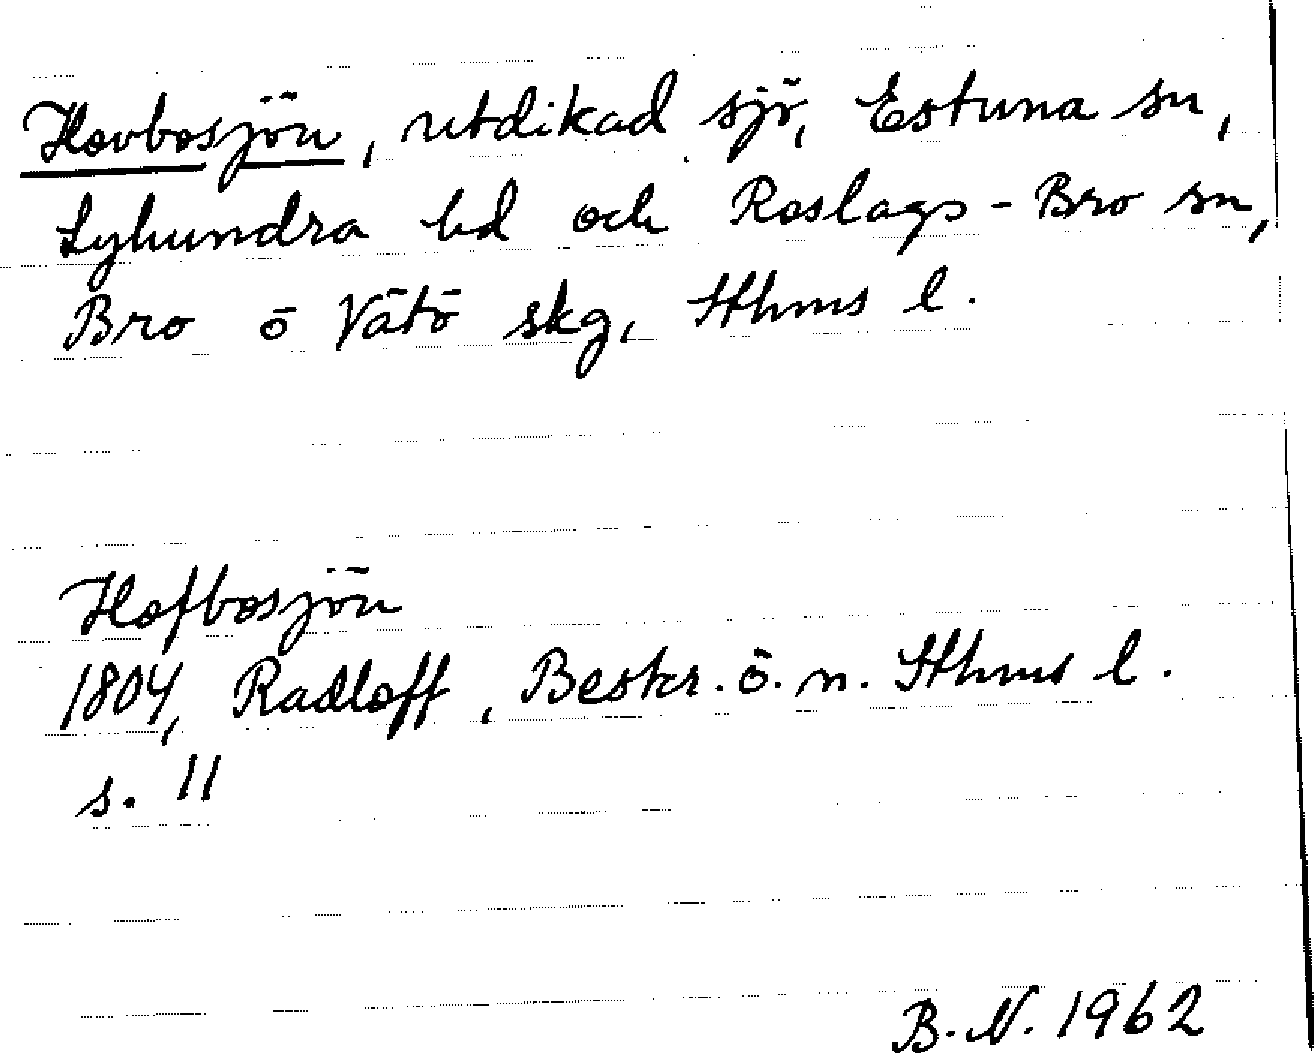 Hovbosjön, utdikad sjö, Estuna sn,
Lyhundra hd och Roslags-Bro sn,
Bro o Vätö skg, Sthms l.
Hofbosjön
1804, Radloff, Beskr. ö. n. Sthms l.
s. 11
B.N. 1962